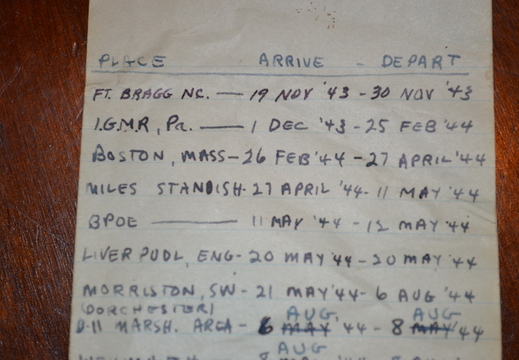 PLACE ARRIVE - DEPART
FT. BRAGG NC. — 19 NOV '43 - 30 NOV '43
I.G.M.R, Pa. — 1 DEC '43 - 25 FEB '44
BOSTON, MASS - 26 FEB '44 - 27 APRIL '44
MILES STANDISH - 27 APRIL '44 - 11 MAY '44
BPOE — 11 MAY '44 - 12 MAY '44
LIVERPOOL, ENG - 20 MAY '44 - 20 MAY '44
MORRISTON, SW - 21 MAY '44 - 6 AUG '44
(DORCHESTER) AUG AUG
D-11 MARSH. AREA - 6 MAY '44 - 8 MAY '44
AUG